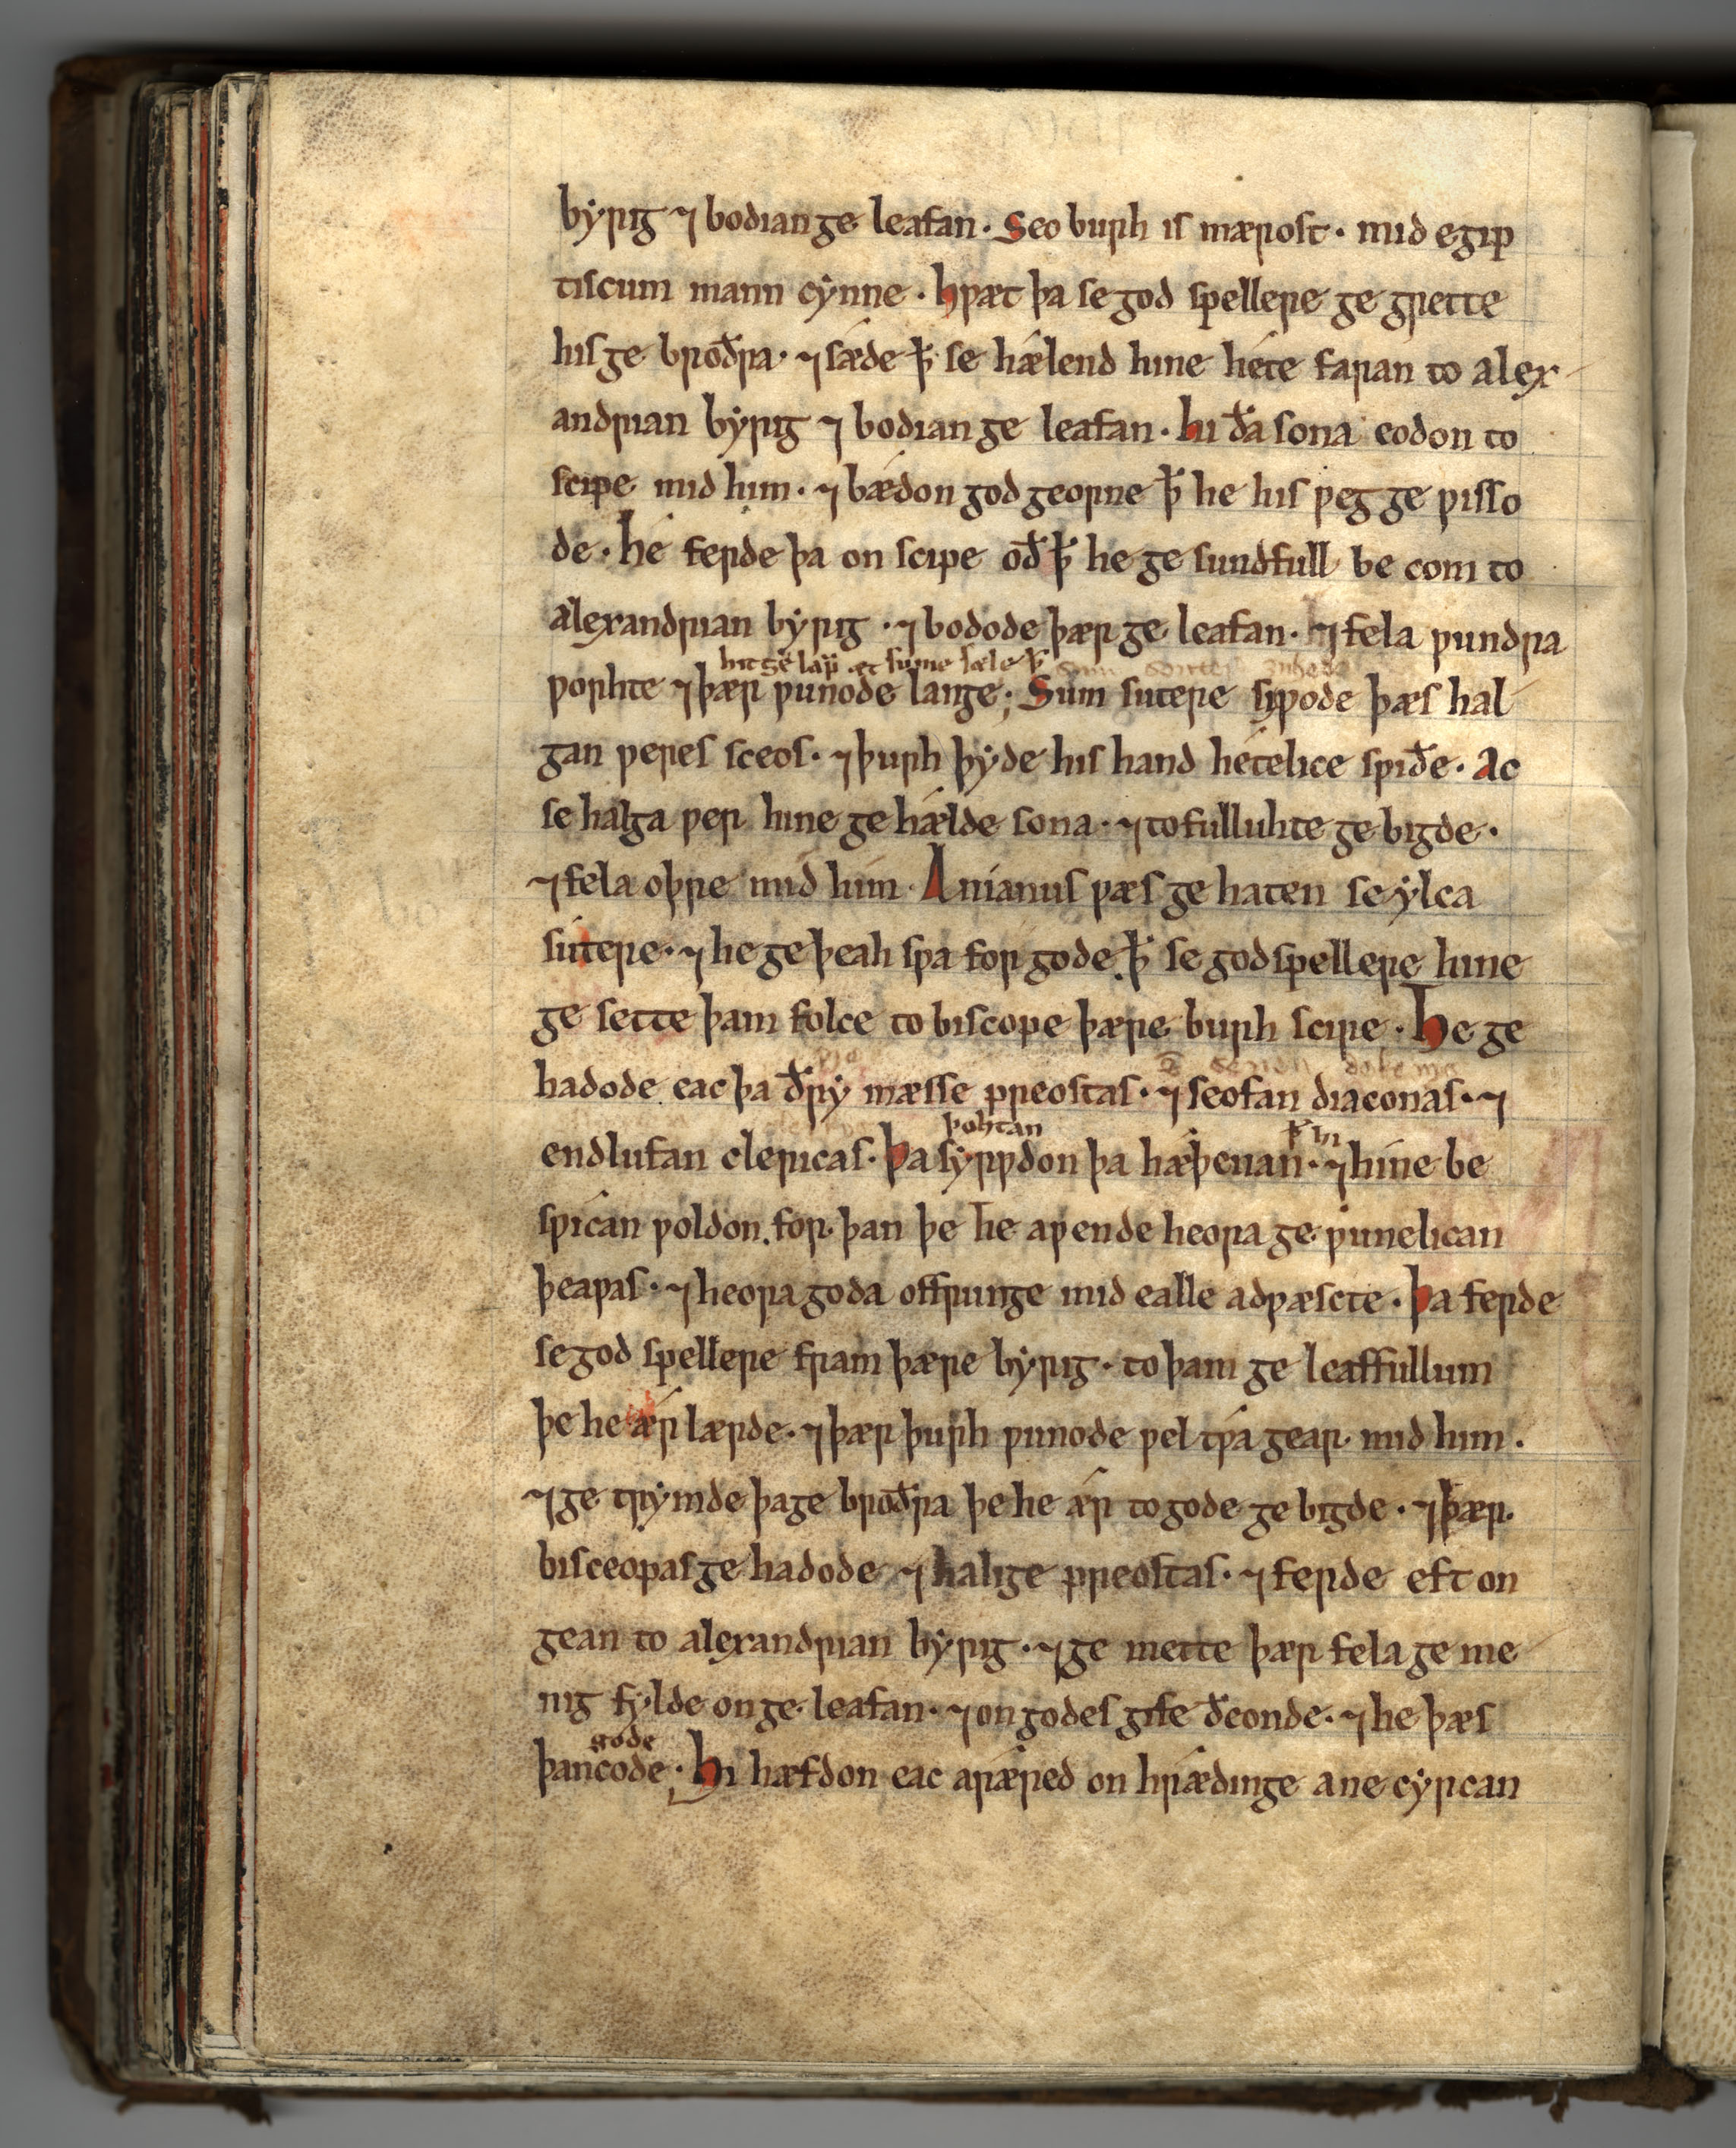 byrig ⁊ bodian ge leafan. Seo burh is mærost. mid egip
tiscum mann cynne. hƿæt þa se god spellere ge grette
his ge broðra. ⁊ sǽde ꝥ se hǽlend hine héte faran to alex
andrian byrig ⁊ bodian ge leafan. hi ða sona eodon to
scipe mid him. ⁊ bǽdon god georne ꝥ he his ƿeg ge ƿisso
de. hé ferde þa on scipe oð ꝥ he ge sundfull be com to
alexandrian byrig. ⁊ bodode þær ge leafan. ⁊ fela ƿundra
hit gelāp æt sume sæle ꝥ
ƿorhte ⁊ þær ƿunode lange; Sum sutere siƿode þæs hal
gan ƿeres sceos. ⁊ þurh þyde his hand hételice sƿiðe. Ac
se halga ƿer hine ge hǽlde sona. ⁊ to fulluhte ge bigde.
⁊ fela oþre mid him. Anianus ƿæs ge haten se ylca
sútere. ⁊ he ge þeah sƿa for gode ꝥ se godspellere hine
ge sette þam folce to biscope þære burh scire. He ge
hadode eac þa ðry mæsse preostas. ⁊ seofan diaconas. ⁊
þohtan ꝥ hi
endlufan clericas. þa syrƿdon þa hæþenan. ⁊ hine be
sƿícan ƿoldon. for þan þe he aƿende heora ge ƿunelican
þeaƿas. ⁊ heora goda offrunge mid ealle adƿæscte. þa ferde
se god spellere fram þære byrig. to þam ge leaffullum
þe he ǽr lærde. ⁊ þær þurh ƿunode ƿel tƿá gear mid him.
⁊ ge trymde þa ge broðra þe he ǽr to gode ge bigde. ⁊ þær
bisceopas ge hadode ⁊ halige preostas. ⁊ ferde eft on
gean to alexandrian byrig. ⁊ ge mette þær fela ge me
nig fylde on ge leafan. ⁊ on godes gife ðeonde. ⁊ he þæs
gode
þancode. Hi hæfdon eac arǽred on hrǽdinge ane cyrcan